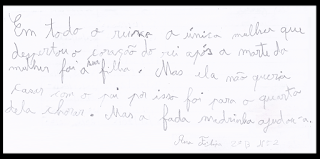 Em todo o reino a única mulher que
despertou o coração do rei após a morte da
mulher foi a sua filha. Mas ela não queria
casar com o pai por isso foi para o quarto
dela chorar. Mas a fada madrinha ajudou-a.
Ana